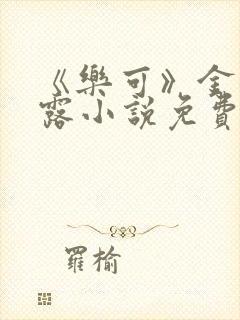 《樂可》金
露小說免費
羅榆